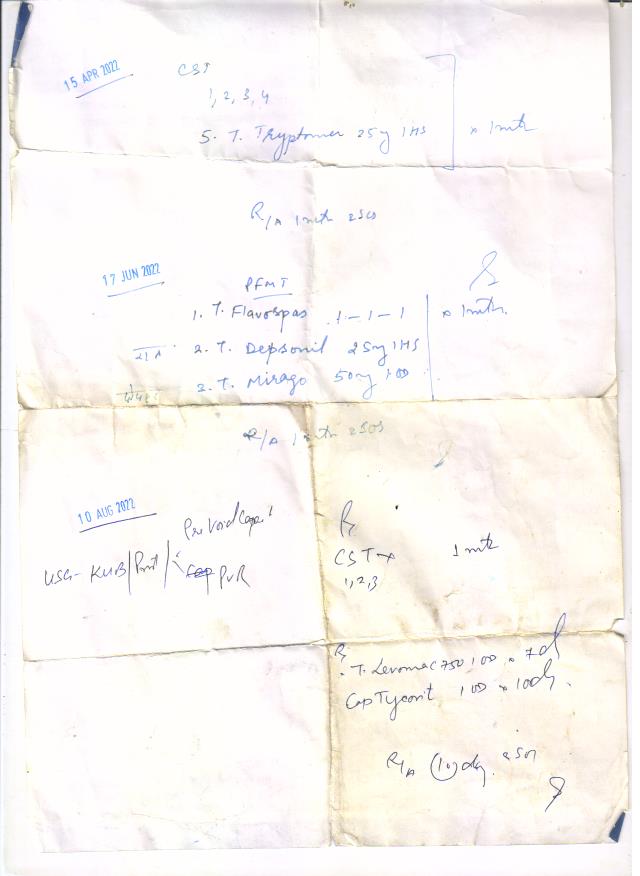 15 APR 2022
CST
1, 2, 3, 4
5. T. Tryptomer 25mg 1 HS x 1 mth
R/A 1 mth SOS
17 JUN 2022
PFMT
1. T. Flavospas 1-1-1
2. T. Depsonil 25mg 1 HS x 1 mth.
3. T. Mirago 50mg 1 OD
R/A 1 mth SOS
10 AUG 2022
Pre Void Cap.
USG - KUB/Prost/ PVR
R
CST x 1 mth
1, 2, 3
R
T. Levomac 750 1 OD x 7 d
Cap 1 OD x 10 d.
R/A 10 day SOS